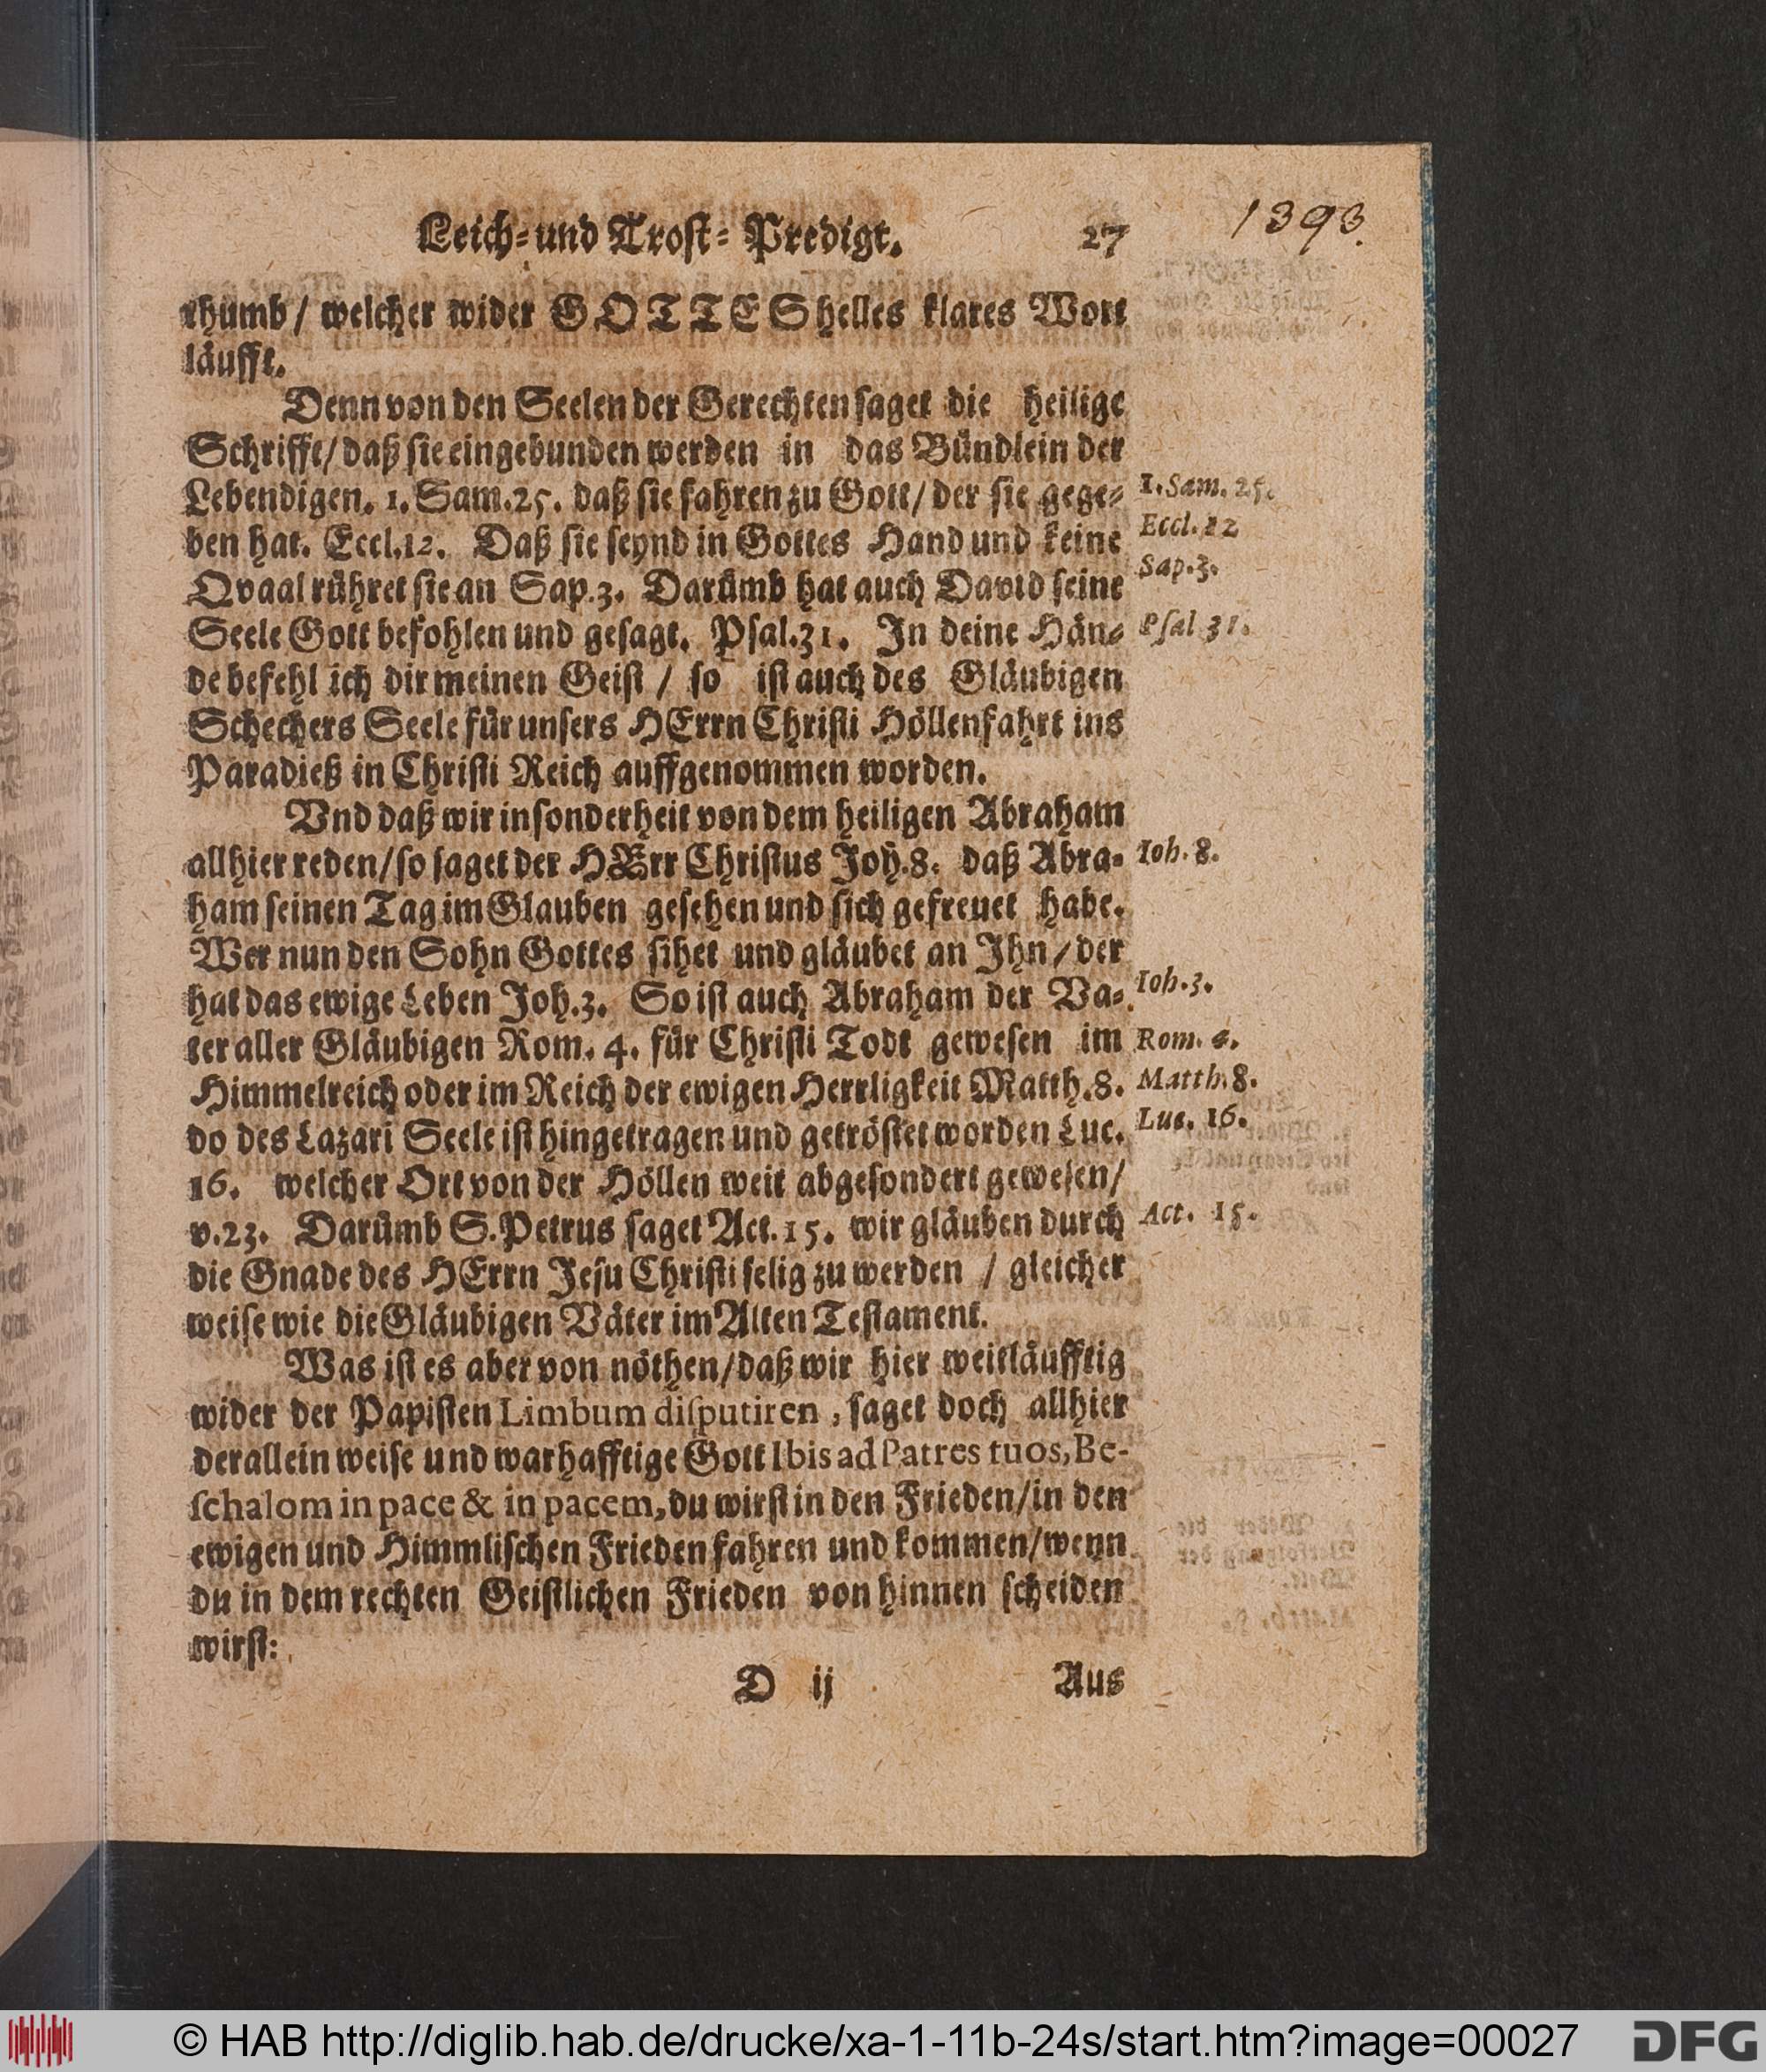 Leich- und Trost- Predigt. 27
1393.
thumb / welcher wider GOTTES helles klares Wort
läufft.
Denn von den Seelen der Gerechten saget die heilige
Schrifft / daß sie eingebunden werden in das Bündlein der
Lebendigen. 1. Sam. 25. daß sie fahren zu Gott / der sie gege-
1. Sam. 25.
ben hat. Eccl. 12. Daß sie seynd in Gottes Hand und keine
Eccl. 12
Qvaal rühret sie an Sap. 3. Darümb hat auch David seine
Sap. 3.
Seele Gott befohlen und gesagt. Psal. 31. In deine Hän-
Psal 31.
de befehl ich dir meinen Geist / so ist auch des Gläubigen
Schechers Seele für unsers HErrn Christi Höllenfahrt ins
Paradieß in Christi Reich auffgenommen worden.
Vnd daß wir insonderheit von dem heiligen Abraham
allhier reden / so saget der HErr Christus Joh. 8. daß Abra-
Ioh. 8.
ham seinen Tag im Glauben gesehen und sich gefreuet habe.
Wer nun den Sohn Gottes sihet und gläubet an Ihn / der
hat das ewige Leben Joh. 3. So ist auch Abraham der Va-
Ioh. 3.
ter aller Gläubigen Rom. 4. für Christi Todt gewesen im
Rom. 4.
Himmelreich oder im Reich der ewigen Herrligkeit Matth. 8.
Matth. 8.
do des Lazari Seele ist hingetragen und getröstet worden Luc.
Luc. 16.
16. welcher Ort von der Höllen weit abgesondert gewesen /
v. 23. Darümb S. Petrus saget Act. 15. wir gläuben durch
Act. 15.
die Gnade des HErrn Jesu Christi selig zu werden / gleicher
weise wie die Gläubigen Väter im Alten Testament.
Was ist es aber von nöthen / daß wir hier weitläufftig
wider der Papisten Limbum disputiren, saget doch allhier
der allein weise und warhafftige Gott Ibis ad Patres tuos, Be-
schalom in pace & in pacem, du wirst in den Frieden / in den
ewigen und Himmlischen Frieden fahren und kommen / wenn
du in dem rechten Geistlichen Frieden von hinnen scheiden
wirst:
D ij Aus
© HAB http://diglib.hab.de/drucke/xa-1-11b-24s/start.htm?image=00027 DFG